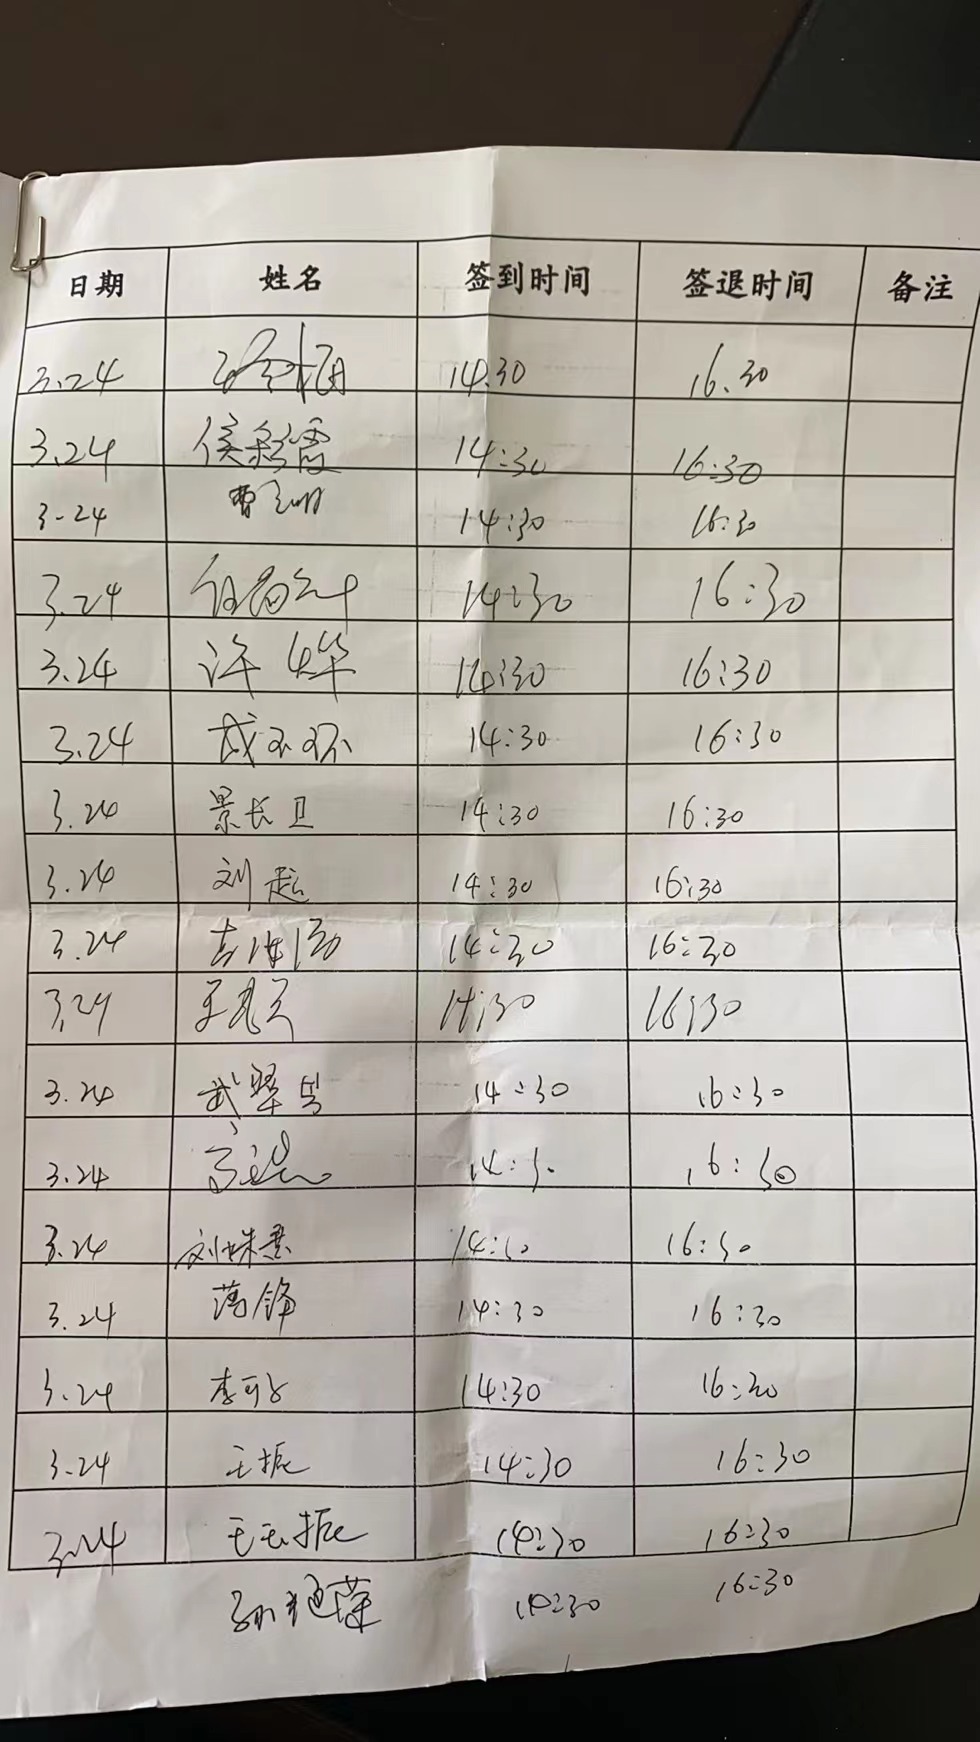 日期 姓名 签到时间 签退时间 备注
3.24 14.30 16.30
3.24 侯彩霞 14:30 16:30
3-24 曹 14:30 16:30
3.24 14:30 16:30
3.24 许烨 14:30 16:30
3.24 成 14:30 16:30
3.24 景长卫 14:30 16:30
3.24 刘超 14:30 16:30
3.24 14:30 16:30
3.24 14:30 16:30
3.24 武翠 14:30 16:30
3.24 14:30 16:30
3.24 刘姝 14:30 16:30
3.24 蒲锋 14:30 16:30
3.24 李 14:30 16:30
3.24 王振 14:30 16:30
3.24 王振 14:30 16:30
14:30 16:30